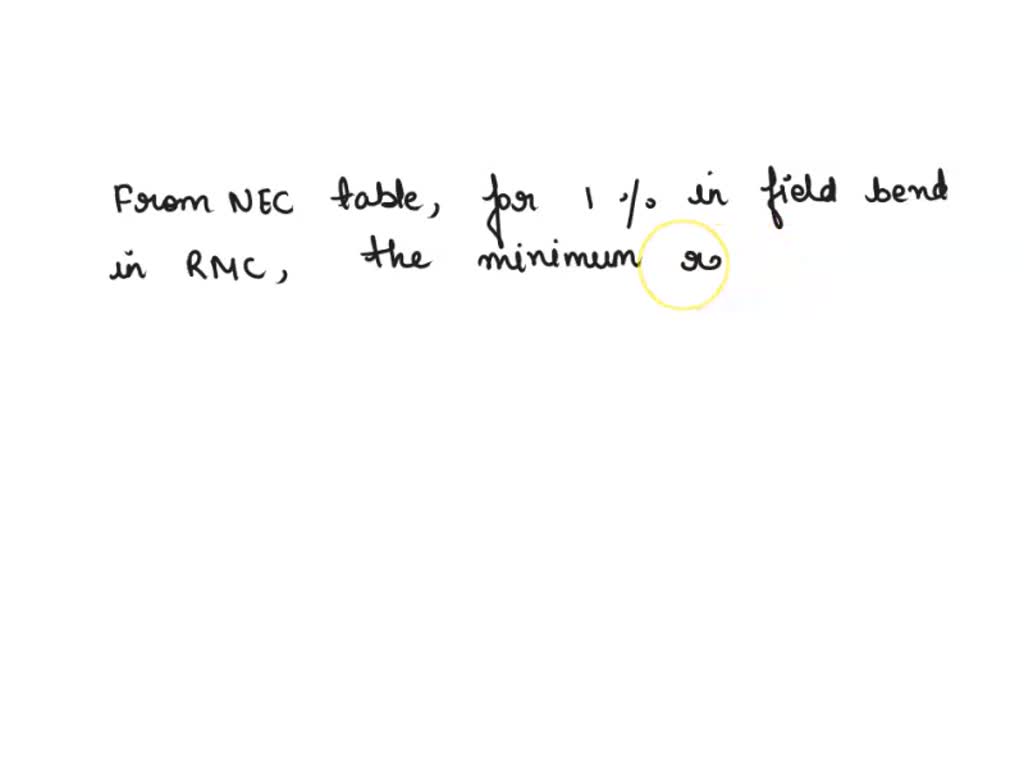 From NEC table, for 1 % in field bend
in RMC, the minimum